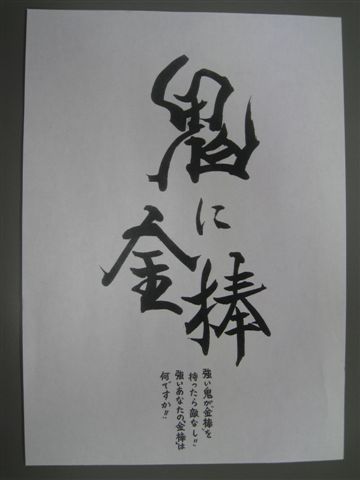 鬼に
金棒
強い鬼が、"金棒"を
持ったら敵なし!!
強いあなたの、"金棒"は
何ですか!!